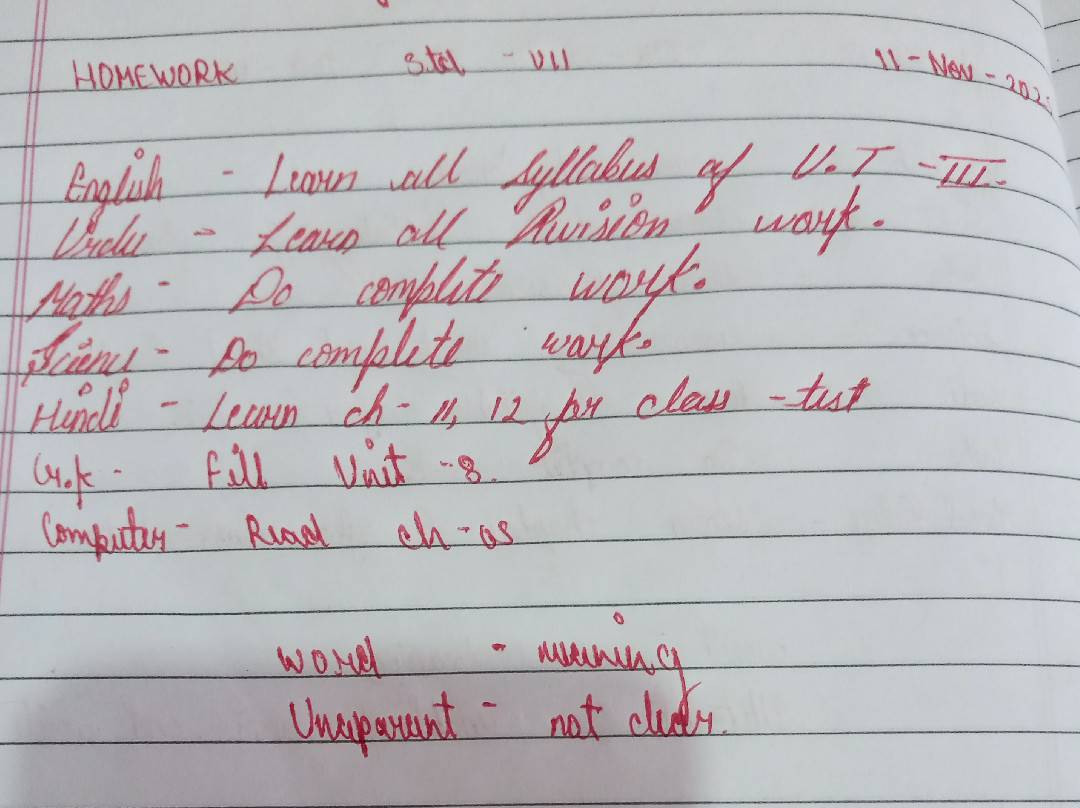 HOMEWORK Std - VII 11 - Nov - 202
English - Learn all Syllabus of U.T - III.
Urdu - Learn all Revision work.
Maths - Do complete work.
Science - Do complete work.
Hindi - Learn ch - 11, 12 for class - test
G.k - Fill Unit - 8.
Computer - Read ch - 05
Word - meaning
Unaparent - not clear.